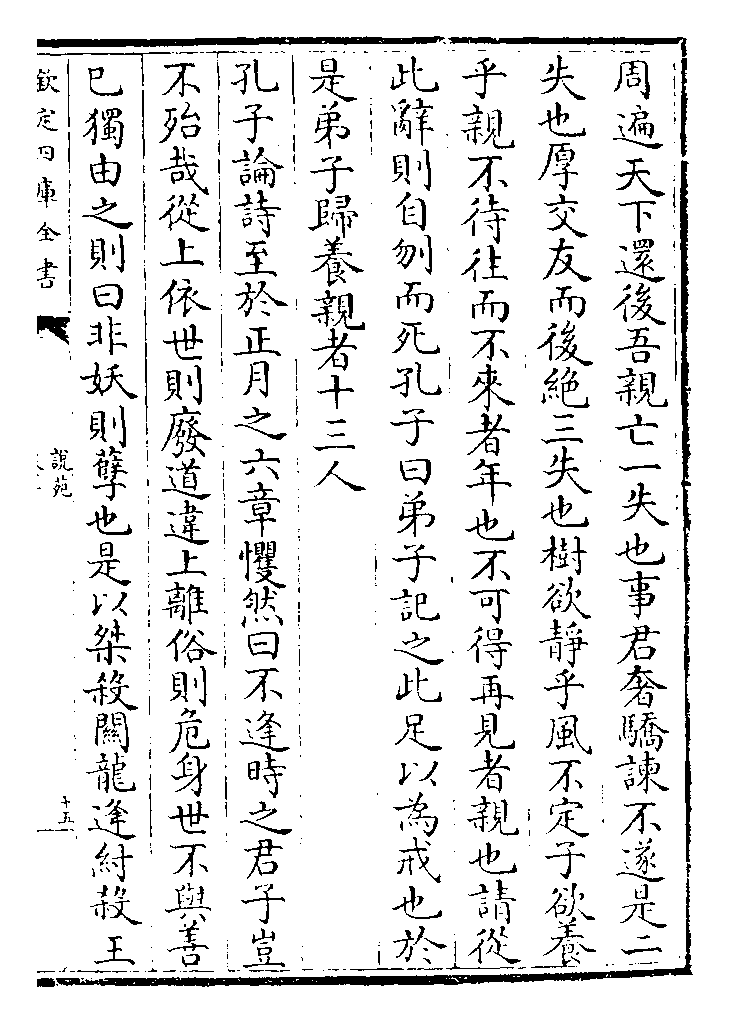 周遍天下還後吾親亡一失也事君奢驕諫不遂是二
失也厚交友而後絶三失也樹欲靜乎風不定子欲養
乎親不待往而不來者年也不可得再見者親也請從
此辭則自刎而死孔子曰弟子記之此足以為戒也於
是弟子歸養親者十三人
孔子論詩至於正月之六章戄然曰不逢時之君子豈
不殆哉從上依世則廢道違上離俗則危身世不與善
已獨由之則曰非妖則孽也是以桀殺關龍逢紂殺王
欽定四庫全書
說苑
十五